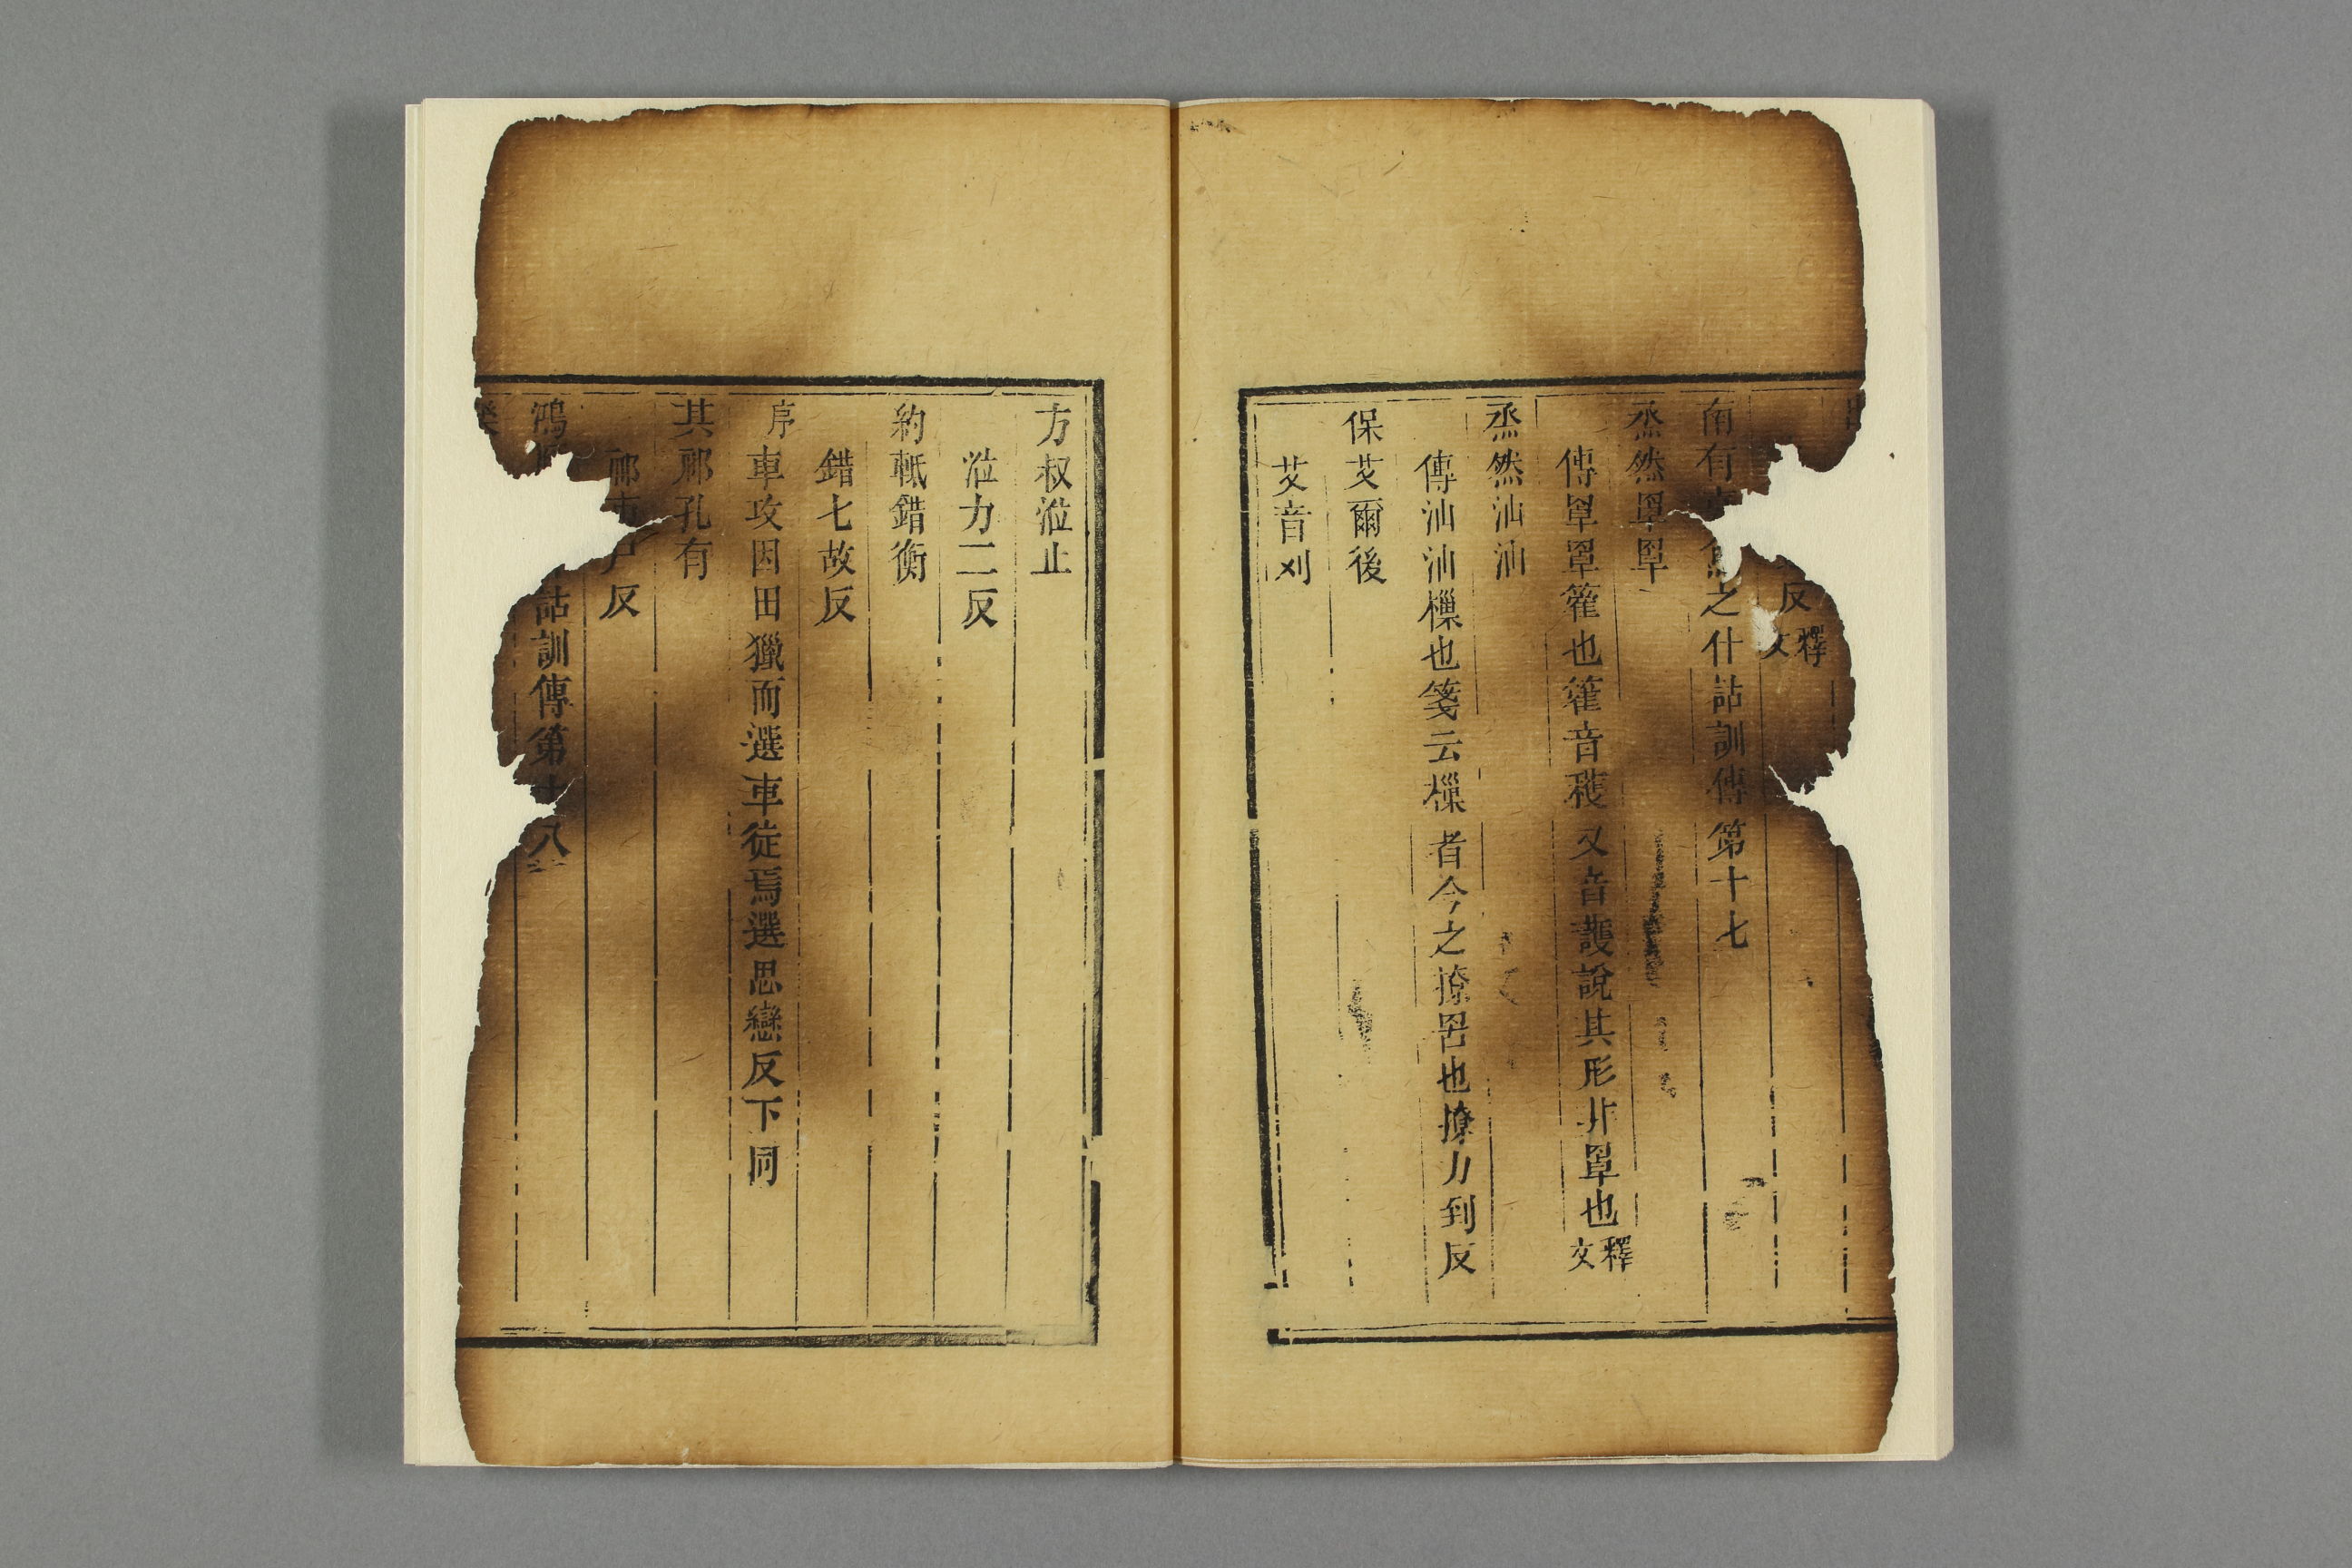 反釋文
南有之什詁訓傳第十七
烝然罩罩
傳罩罩籗也籗音穫又音護說其形非罩也釋文
烝然汕汕
傳汕汕樔也箋云樔者今之撩罟也撩力到反
保艾爾後
艾音刈
方叔涖止
涖力二反
約軝錯衡
錯七故反
序車攻因田獵而選車徒焉選思戀反下同
其祁孔有
祁反
鴻詁訓傳第十八